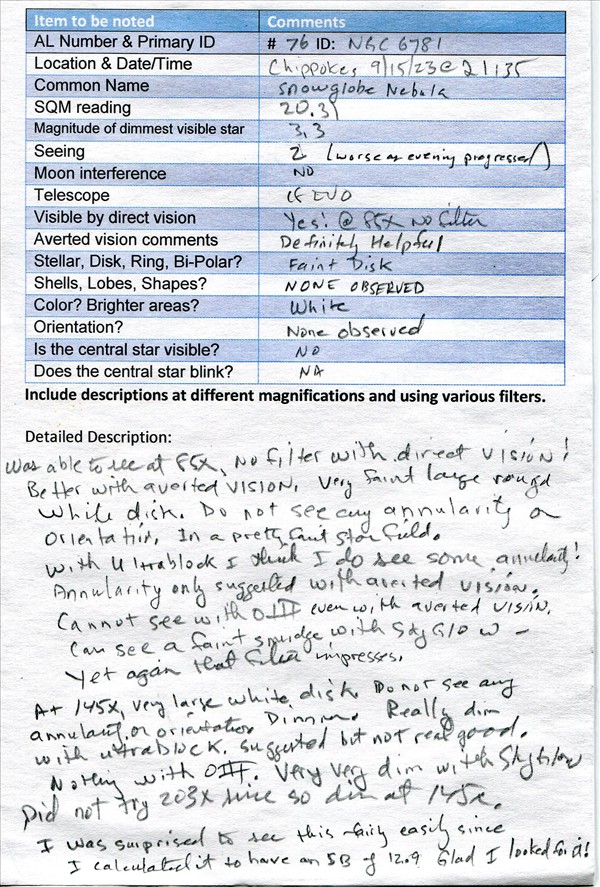 Item to be noted Comments
AL Number & Primary ID # 76 ID: NGC 6781
Location & Date/Time Chippokes 9/15/23 @ 21:35
Common Name Snowglobe Nebula
SQM reading 20.31
Magnitude of dimmest visible star 3.3
Seeing 2 (worse as evening progressed)
Moon interference NO
Telescope EVO
Visible by direct vision Yes! @ 85X No filter
Averted vision comments Definitely Helpful
Stellar, Disk, Ring, Bi-Polar? Faint Disk
Shells, Lobes, Shapes? NONE OBSERVED
Color? Brighter areas? White
Orientation? None observed
Is the central star visible? NO
Does the central star blink? NA
Include descriptions at different magnifications and using various filters.
Detailed Description:
Was able to see at 85X, No filter with direct VISION!
Better with averted VISION. Very faint large round
White disk. Do not see any annularity or
Orientation. In a pretty faint star field.
With Ultrablock I think I do see some annularity!
Annularity only suggested with averted vision.
Cannot see with OIII even with averted vision.
Can see a faint smudge with SkyGlow –
Yet again that filter impresses.
At 145X, very large white disk. Do not see any
annularity or orientation. Dimmer. Really dim
with ultrablock. suggested but not real good.
Nothing with OIII. Very very dim with Skyglow
Did not try 203X since so dim at 145x.
I was surprised to see this fairly easily since
I calculated it to have an SB of 12.9 Glad I looked for it!